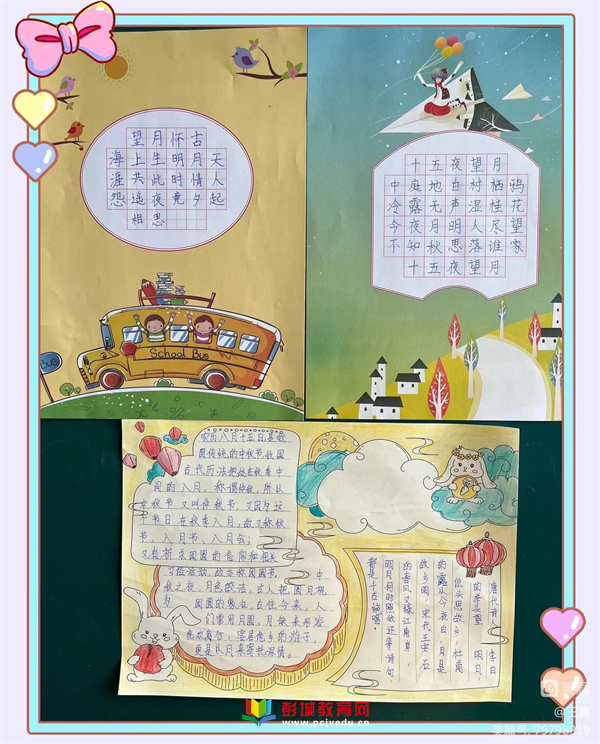 望月怀古
海上生明月天
涯共此时情人
怨遥夜竟夕起
相思
School Bus
BUS
十五夜望月
中庭地白树栖鸦
冷露无声湿桂花
今夜月明人尽望
不知秋思落谁家
十五夜望月
农历八月十五日是我
国传统的中秋节。我国
古代历法把处在秋季中
间的八月，称谓仲秋，所以
中秋节又叫仲秋节。又因为这
个节日在秋季八月，故又称秋
节、八月节、八月会；
又有祈求团圆的信仰和相关
习俗活动，故亦称团圆节。中
秋之夜，月色皎洁，古人把圆月视
为团圆的象征，古往今来，人
们常用月圆、月缺来形容
悲欢离合，客居他乡的游子，
更是以月来寄托深情。
唐代诗人李白
的举头望明月，
低头思故乡，杜甫
的露从今夜白，月是
故乡明，宋代王安石
的春风又绿江南岸，
明月何时照我还等诗句
都是千古绝唱。
彭城教育网
www.pcjyedu.cn
美篇号: 79798919